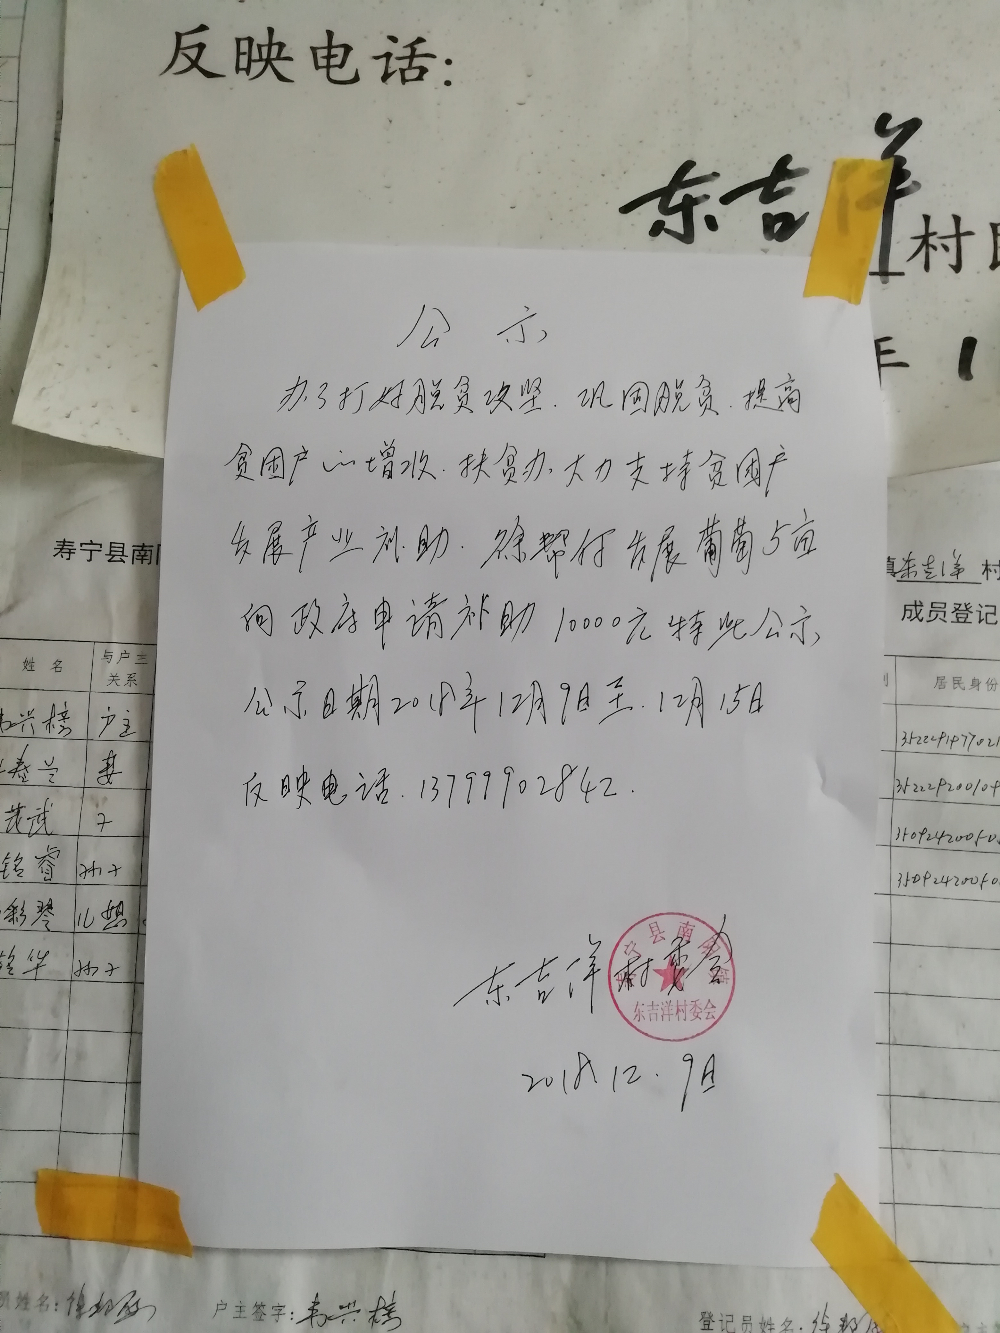 反映电话:
东吉洋村
年 1
公示
为了打好脱贫攻坚.巩固脱贫.提高
贫困户的增收.扶贫办.大力支持贫困户
发展产业补助.徐帮付发展葡萄5亩
向政府申请补助10000元特此公示
公示日期2018年12月9日至.12月15日
反映电话.13799902842.
东吉洋村委会
县南
东吉洋村委会
2018.12.9日
寿宁县南
姓名 与户主关系
兴榜 户主
春兰 妻
茂武 子
铭睿 孙子
彩琴 儿媳
铭华 孙子
镇东吉洋村
成员登记
居民身份
员姓名:
户主签字:韦兴榜
登记员姓名: